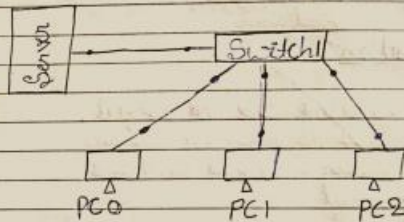 Server
Switch1
PC0
PC1
PC2